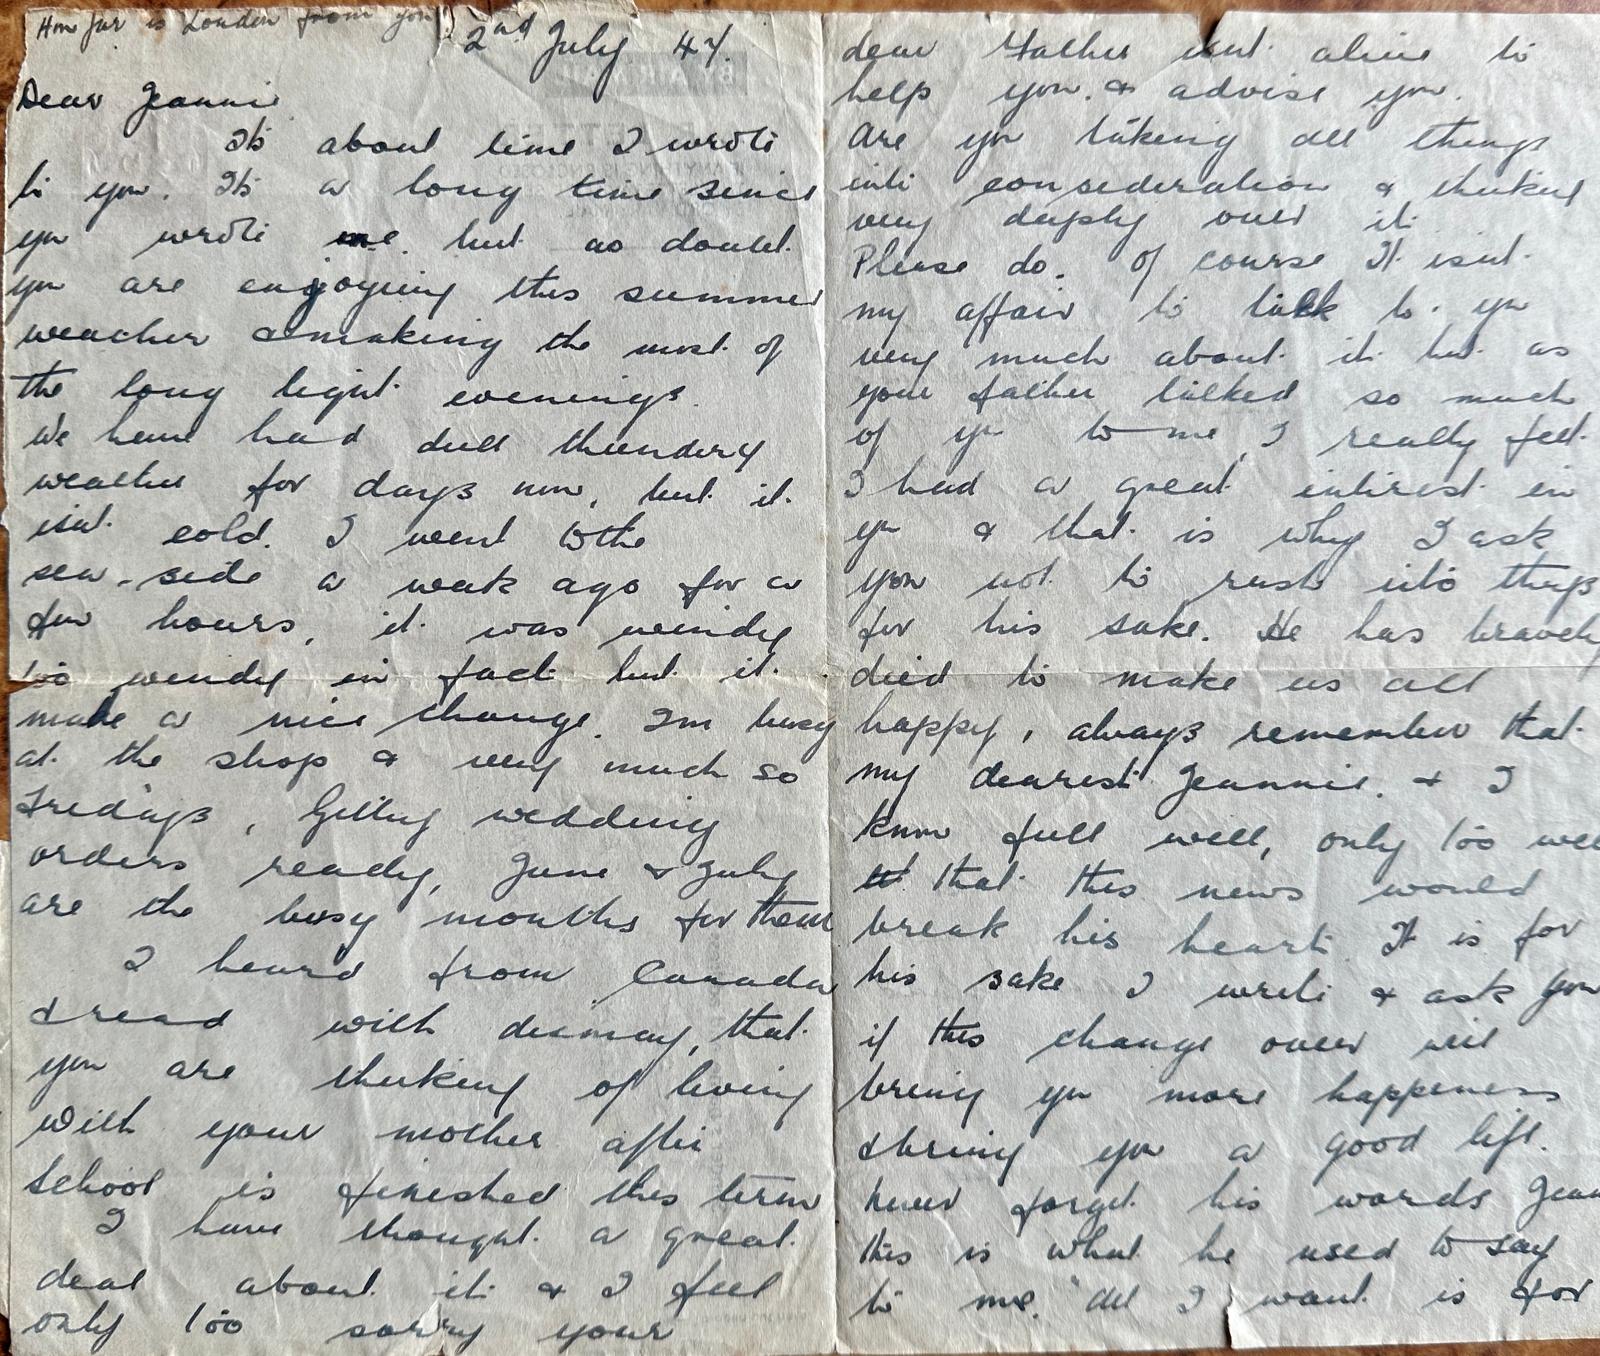 How far is London from you?
2nd July 47.
Dear Jeannie
Its about time I wrote
to you. Its a long time since
you wrote me. but no doubt
you are enjoying this summer
weather & making the most of
the long light evenings.
We have had dull thundery
weather for days now, but it
isnt cold. I went to the
sea-side a week ago for a
few hours, it was windy
too windy in fact but it
made a nice change. Im busy
at the shop & very much so
Fridays, getting wedding
orders ready, June & July
are the busy months for them
I heard from Canada
& read with dismay, that
you are thinking of living
with your mother after
school is finished this term
I have thought a great
deal about it & I feel
only too sorry your
dear Father isnt alive to
help you. & advise you.
Are you taking all things
into consideration & thinking
very deeply over it
Please do. Of course It isnt
my affair to talk to you
very much about it but as
your father talked so much
of you to me, I really feel
I had a great interest in
you & that is why I ask
you not to rush into things
for his sake. He has bravely
died to make us all
happy, always remember that
my dearest Jeannie. & I
know full well, only too well
that this news would
break his heart. It is for
his sake I write & ask you
if this change over will
bring you more happiness
& bring you a good life.
Never forget his words Jean
this is what he used to say
to me. "All I want is for